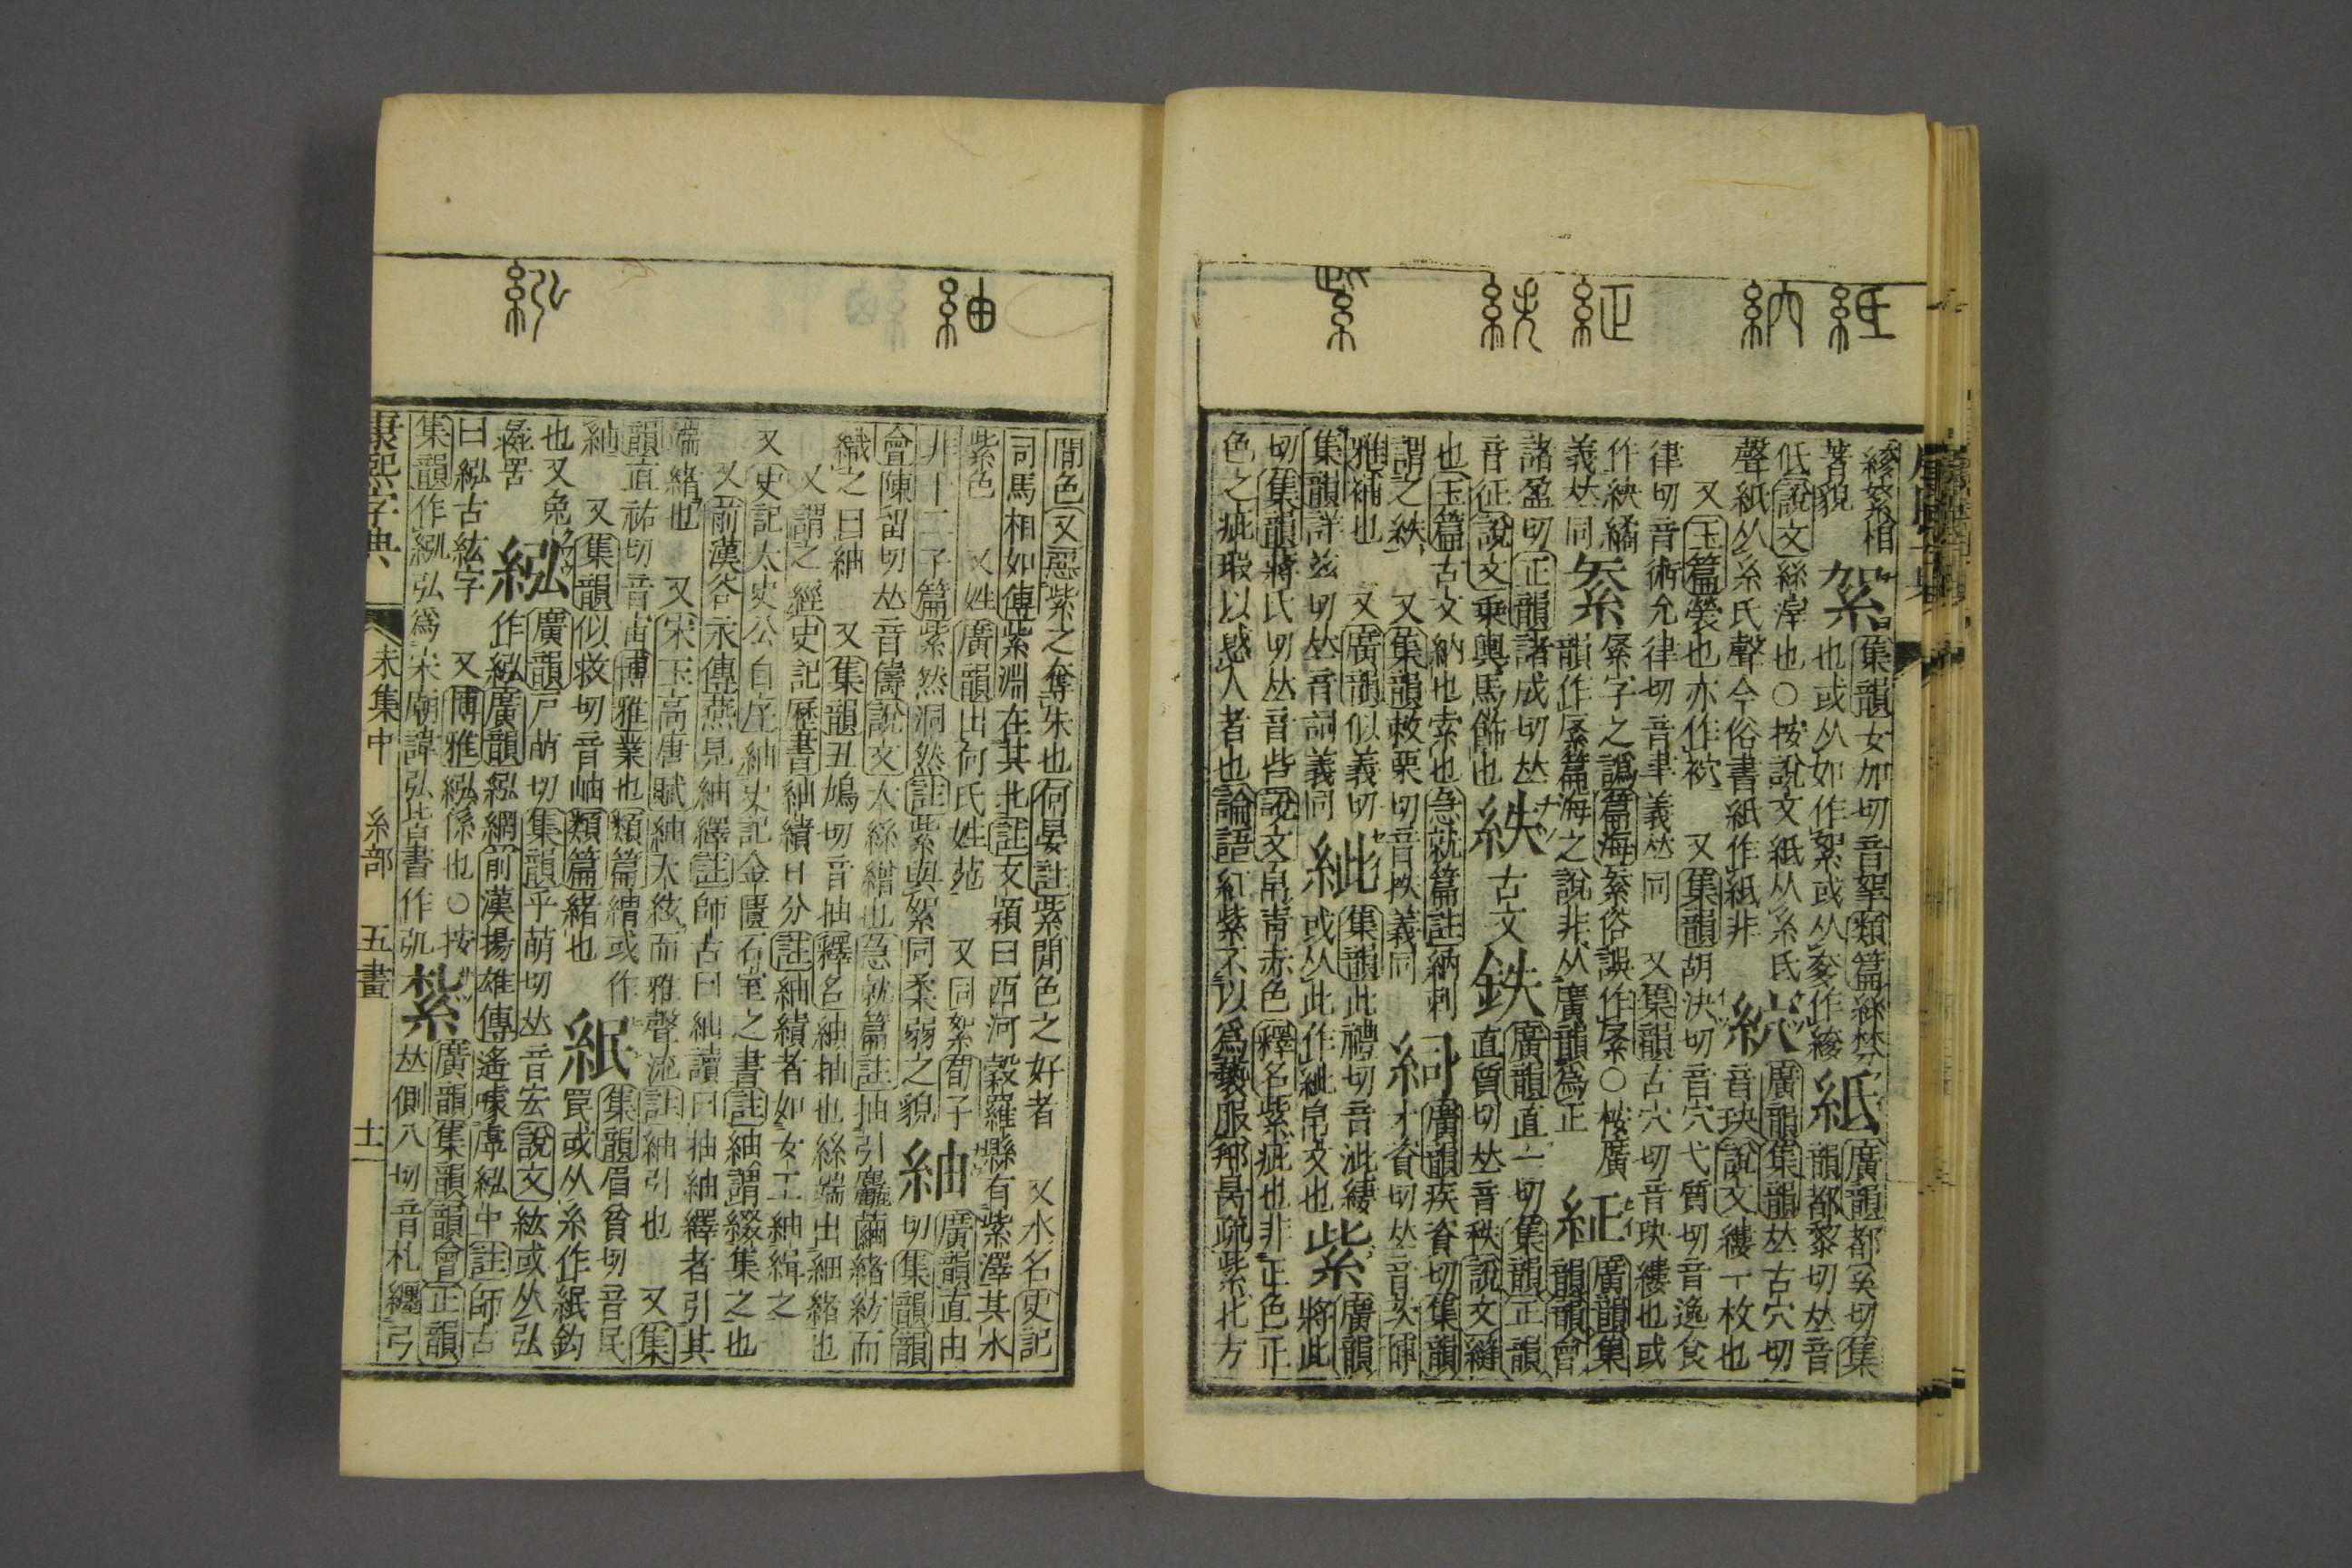 紙 紩 紫
相
著貌
集韻女加切音拏類篇絲棼
也或从如作絮或从
紙
廣韻都奚切集
韻都黎切𠀤音
低說文絲滓也○按說文紙从糸氏
聲紙从糸氏聲今俗書紙作紙非
廣韻集韻𠀤古穴切
音玦說文縷一枚也
又玉篇袋也亦作袕 又集韻胡決切音穴弋質切音逸食
律切音術允律切音聿義𠀤同 又集韻古穴切音玦縷也或
作紻繘
義𠀤同
綮字之譌篇海紊俗誤作紊○按廣
韻作紊篇海之說非从廣韻爲正
紝
廣韻集
韻韻會
諸盈切正韻諸成切𠀤
音征說文乗輿馬飾也
紩
古文
鉄
廣韻直一切集韻正韻
直質切𠀤音秩說文縫
也玉篇古文納也索也急就篇註納刺
謂之紩 又集韻敕栗切音抶義同
廣韻疾資切集韻
才資切𠀤音茨爾
雅補也 又廣韻似義切
集韻詳兹切𠀤音詞義同
紪
集韻此禮切音泚縷
或从此作紪帛文也
紫
廣韻
將此
切集韻蔣氏切𠀤音些說文帛靑赤色釋名紫疵也非正色正
色之疵瑕以惑人者也論語紅紫不以爲褻服邢昺疏紫北方
紬 紭
閒色又惡紫之奪朱也何晏註紫閒色之好者 又水名史記
司馬相如傳紫淵在其北註文穎曰西河穀羅縣有紫澤其水
紫色 又姓廣韻出何氏姓苑 又同絮荀子
非十二子篇紫然洞然註紫與絮同柔弱之貌
紬
廣韻直由
切集韻韻
會陳留切𠀤音儔說文大絲繒也急就篇註抽引麤繭緖紡而
織之曰紬 又集韻丑鳩切音抽釋名紬抽也絲端出細緖也
又謂之經史記歷書紬績日分註紬績者如女工紬緝之
又史記太史公自序紬史記金匱石室之書註紬謂綴集之也
又前漢谷永傳燕見紬繹註師古曰紬讀曰抽紬繹者引其
端緖也 又宋玉高唐賦紬大絃而雅聲流註紬引也 又集
韻直祐切音宙博雅業也類篇績或作
紬 又集韻似救切音岫類篇緒也
紙
集韻眉貧切音民
罠或从糸作紙鈞
也又兔
罟
紭
廣韻戸萌切集韻乎萌切𠀤音宏說文紘或从弘
作紭廣韻紭網前漢揚雄傳遙噱虖紭中註師古
曰紭古紘字 又博雅紭係也○按
集韻作紭弘爲宋廟諱弘皆書作弘
紮
廣韻集韻韻會正韻
𠀤側八切音札纏弓
康熙字典 未集中 糸部 五畫 十一